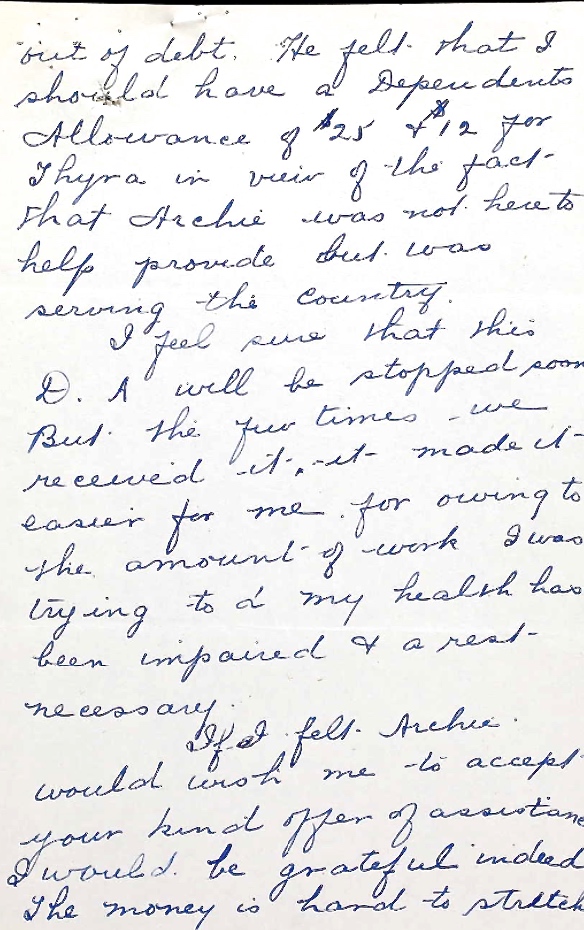 out of debt. He felt that I
should have a Dependents
Allowance of $25 & $12 for
Thyra in view of the fact
that Archie was not here to
help provide but was
serving the country.
I feel sure that this
D. A will be stopped soon
But the few times we
received it, it made it
easier for me, for owing to
the amount of work I was
trying to d my health has
been impaired & a rest
necessary.
If I felt Archie
would wish me to accept
your kind offer of assistanc
I would be grateful indeed
The money is hard to stretch